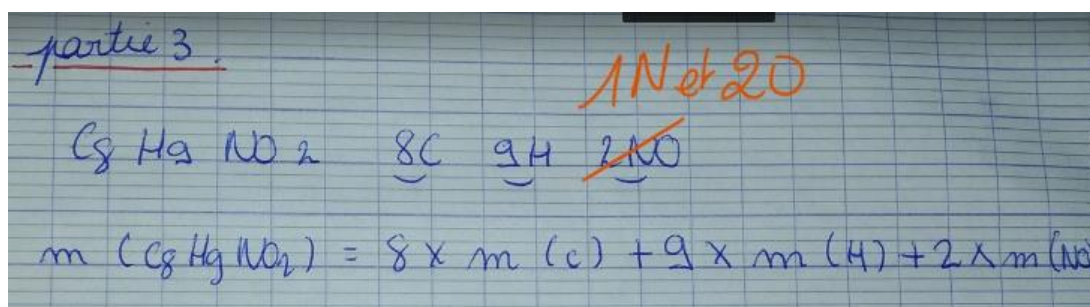 partie 3.
1N et 2O
C8 H9 NO2 8C 9H 2NO
m (C8 H9 NO2) = 8 x m (c) + 9 x m (H) + 2 x m (NO